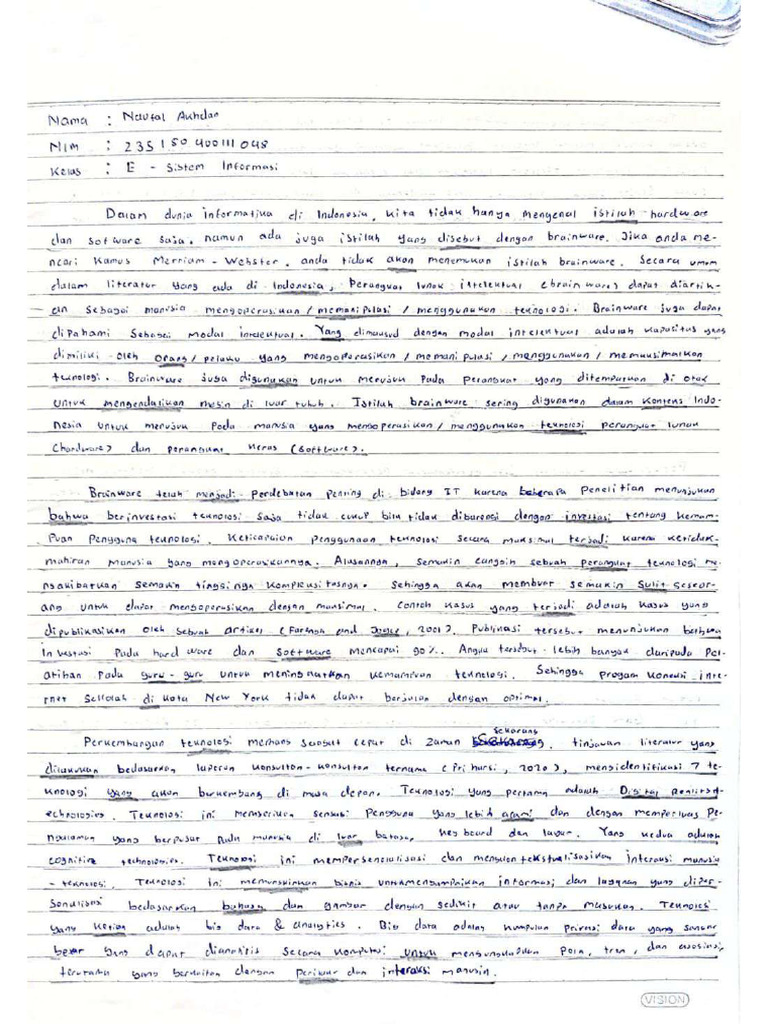 Nama : Naufal Akhdan
NIM : 235150400111048
Kelas : E - Sistem Informasi
Dalam dunia informatika di Indonesia, kita tidak hanya mengenal istilah hardware
dan software saja. namun ada juga istilah yang disebut dengan brainware. Jika anda me-
ncari kamus Merriam - Webster, anda tidak akan menemukan istilah brainware. Secara umum
dalam literatur yang ada di Indonesia, Perangkat lunak intelektual (brainware) dapat diartik-
an sebagai manusia mengoperasikan / memanipulasi / menggunakan teknologi. Brainware juga dapat
dipahami sebagai modal intelektual. Yang dimaksud dengan modal intelektual adalah kapasitas yang
dimiliki oleh orang / pelaku yang mengoperasikan / memanipulasi / menggunakan / memaksimalkan
teknologi. Brainware juga digunakan untuk merujuk pada perangkat yang ditempatkan di otak
untuk mengendalikan mesin di luar tubuh. Istilah brainware sering digunakan dalam konteks Indo-
nesia untuk merujuk pada manusia yang mengoperasikan / menggunakan teknologi perangkat lunak
(hardware) dan perangkat keras (software).
Brainware telah menjadi perdebatan penting di bidang IT karena beberapa penelitian menunjukan
bahwa berinvestasi teknologi saja tidak cukup bila tidak dibarengi dengan investasi tentang kemam-
puan pengguna teknologi. Ketidapaian penggunaan teknologi secara maksimal terjadi karena ketidak-
mahiran manusia yang mengoperasikannya. Alasannya, semakin canggih sebuah perangkat teknologi me-
ngakibatkan semakin tingginya kompleksitasnya. Sehingga akan membuat semakin sulit seseor-
ang untuk dapat mengoperasikan dengan maksimal. Contoh kasus yang terjadi adalah kasus yang
dipublikasikan oleh sebuah artikel ( and Joyce, 2001). Publikasi tersebut menunjukan bahwa
investasi pada hardware dan software mencapai 90%. Angka tersebut lebih banyak daripada pel-
atihan pada guru - guru untuk meningkatkan kemampuan teknologi. Sehingga progam koneksi inte-
rnet sekolah di kota New York tidak dapat berjalan dengan optimal.
Perkembangan teknologi memang sangat cepat di zaman sekarang. tinjauan literatur yang
dilakukan bedasarkan laporan konsultan-konsultan ternama (Prihursi, 2020), mengidentifikasi 7 te-
knologi yang akan berkembang di masa depan. Teknologi yang pertama adalah Digital Reality
echnologies. Teknologi ini memberikan sensasi pengguna yang lebih alami dan dengan memperluas pe-
ngalaman yang berpusat pada manusia di luar batasa, keyboard dan layar. Yang kedua adalah
cognitive technologies. Teknologi ini mempersonalisasi dan mengkontekstualisasikan interaksi manusia
- teknologi. Teknologi ini memungkinkan bisnis untuk menyampaikan informasi dan layanan yang diper-
sonalisasi bedasarkan bahasa dan gambar dengan sedikit atau tanpa masukan. Teknologi
yang ketiga adalah big data & analytics. Big data adalah kumpulan privasi data yang sangat
besar yang dapat dianalisis secara komputasi untuk mengungkapkan pola, tren, dan asosiasi,
terutama yang berkaitan dengan perilaku dan interaksi manusia.
VISION